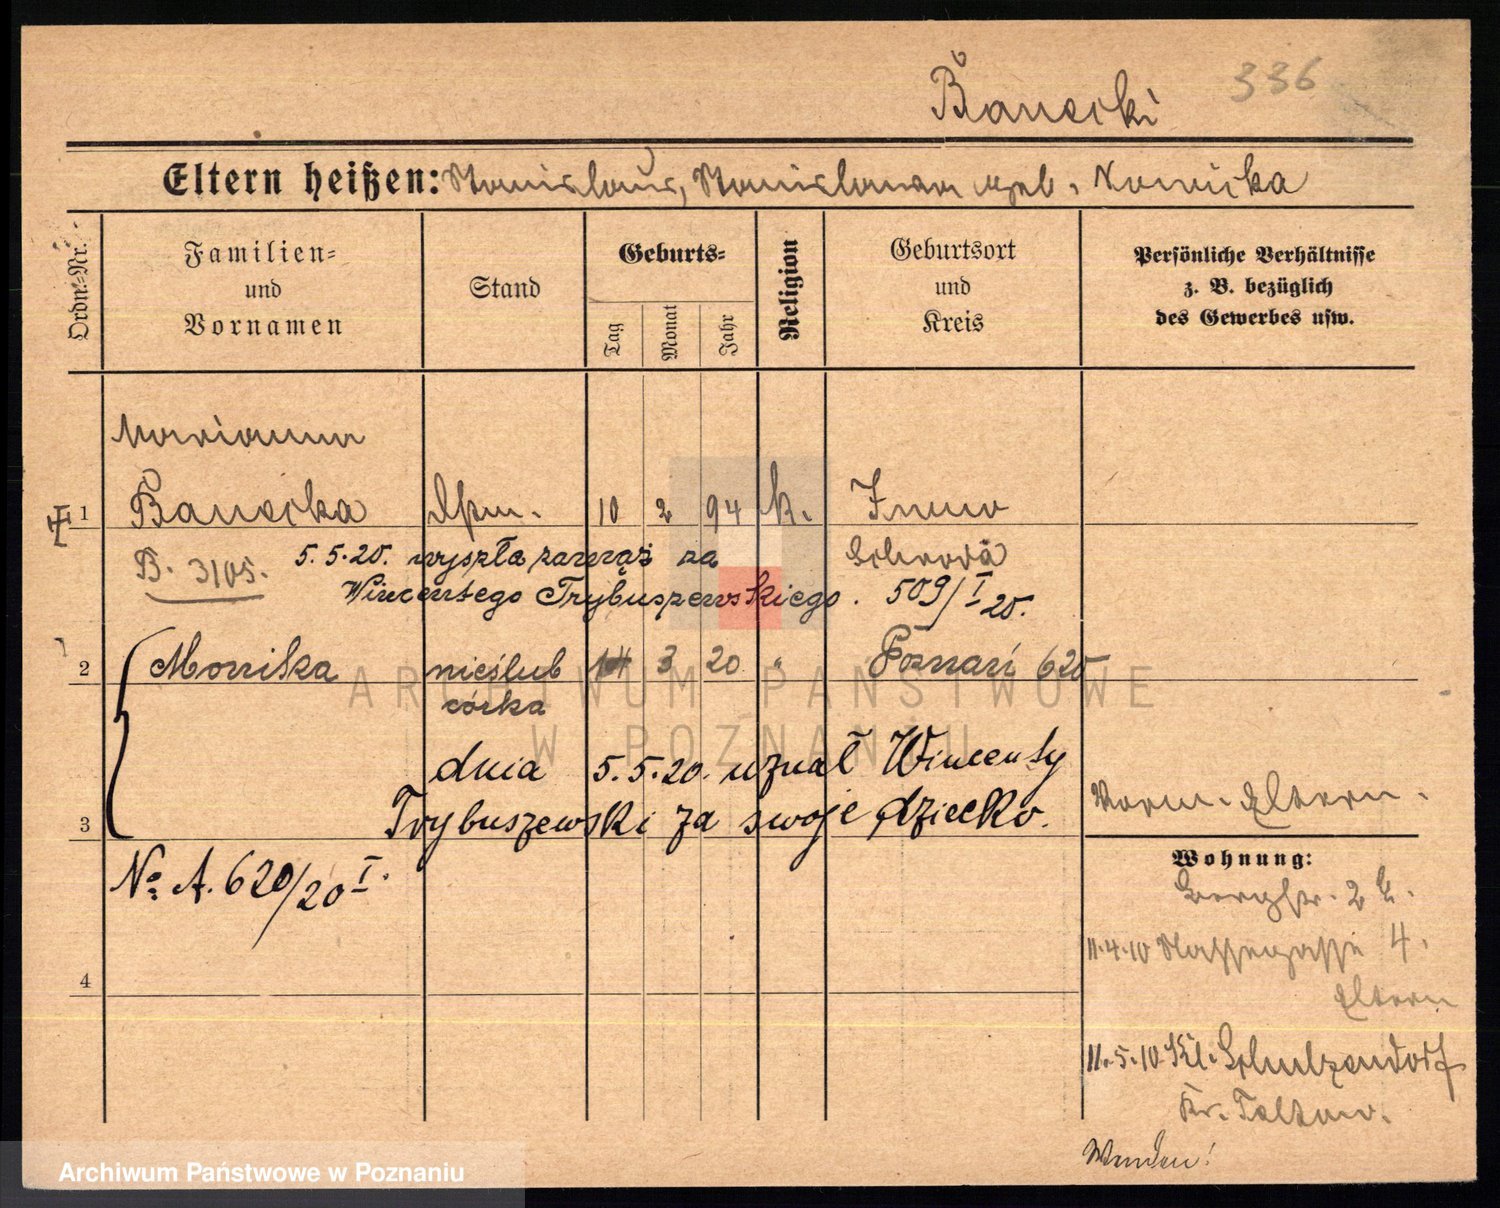 Banecki 336
Eltern heißen: Stanislaus, Stanislawa geb. Nowicka
Ordn.-Nr.
Familien=
und
Vornamen
Stand
Geburts=
Tag
Monat
Jahr
Religion
Geburtsort
und
Kreis
Persönliche Verhältnisse
z. B. bezüglich
des Gewerbes usw.
Marianna
1 Banecka 10 2 94 k.
Schroda
B. 3105. 5.5.20. wyszła zamąż za
Wincentego Trybuszewskiego. 509/I 20.
2 Monika nieślub 14 3 20 " Poznań 620
córka
dnia 5.5.20. uznał Wincenty
3 Trybuszewski za swoje dziecko.
Vorm. Eltern.
No A. 620/20 I.
Wohnung:
Bergstr. 2
11.4.10 4.
Eltern
4
11.5.10 Kl. Schulzendorf
Kr. Teltow.
Wenden!
ARCHIWUM PAŃSTWOWE
W POZNANIU
Archiwum Państwowe w Poznaniu